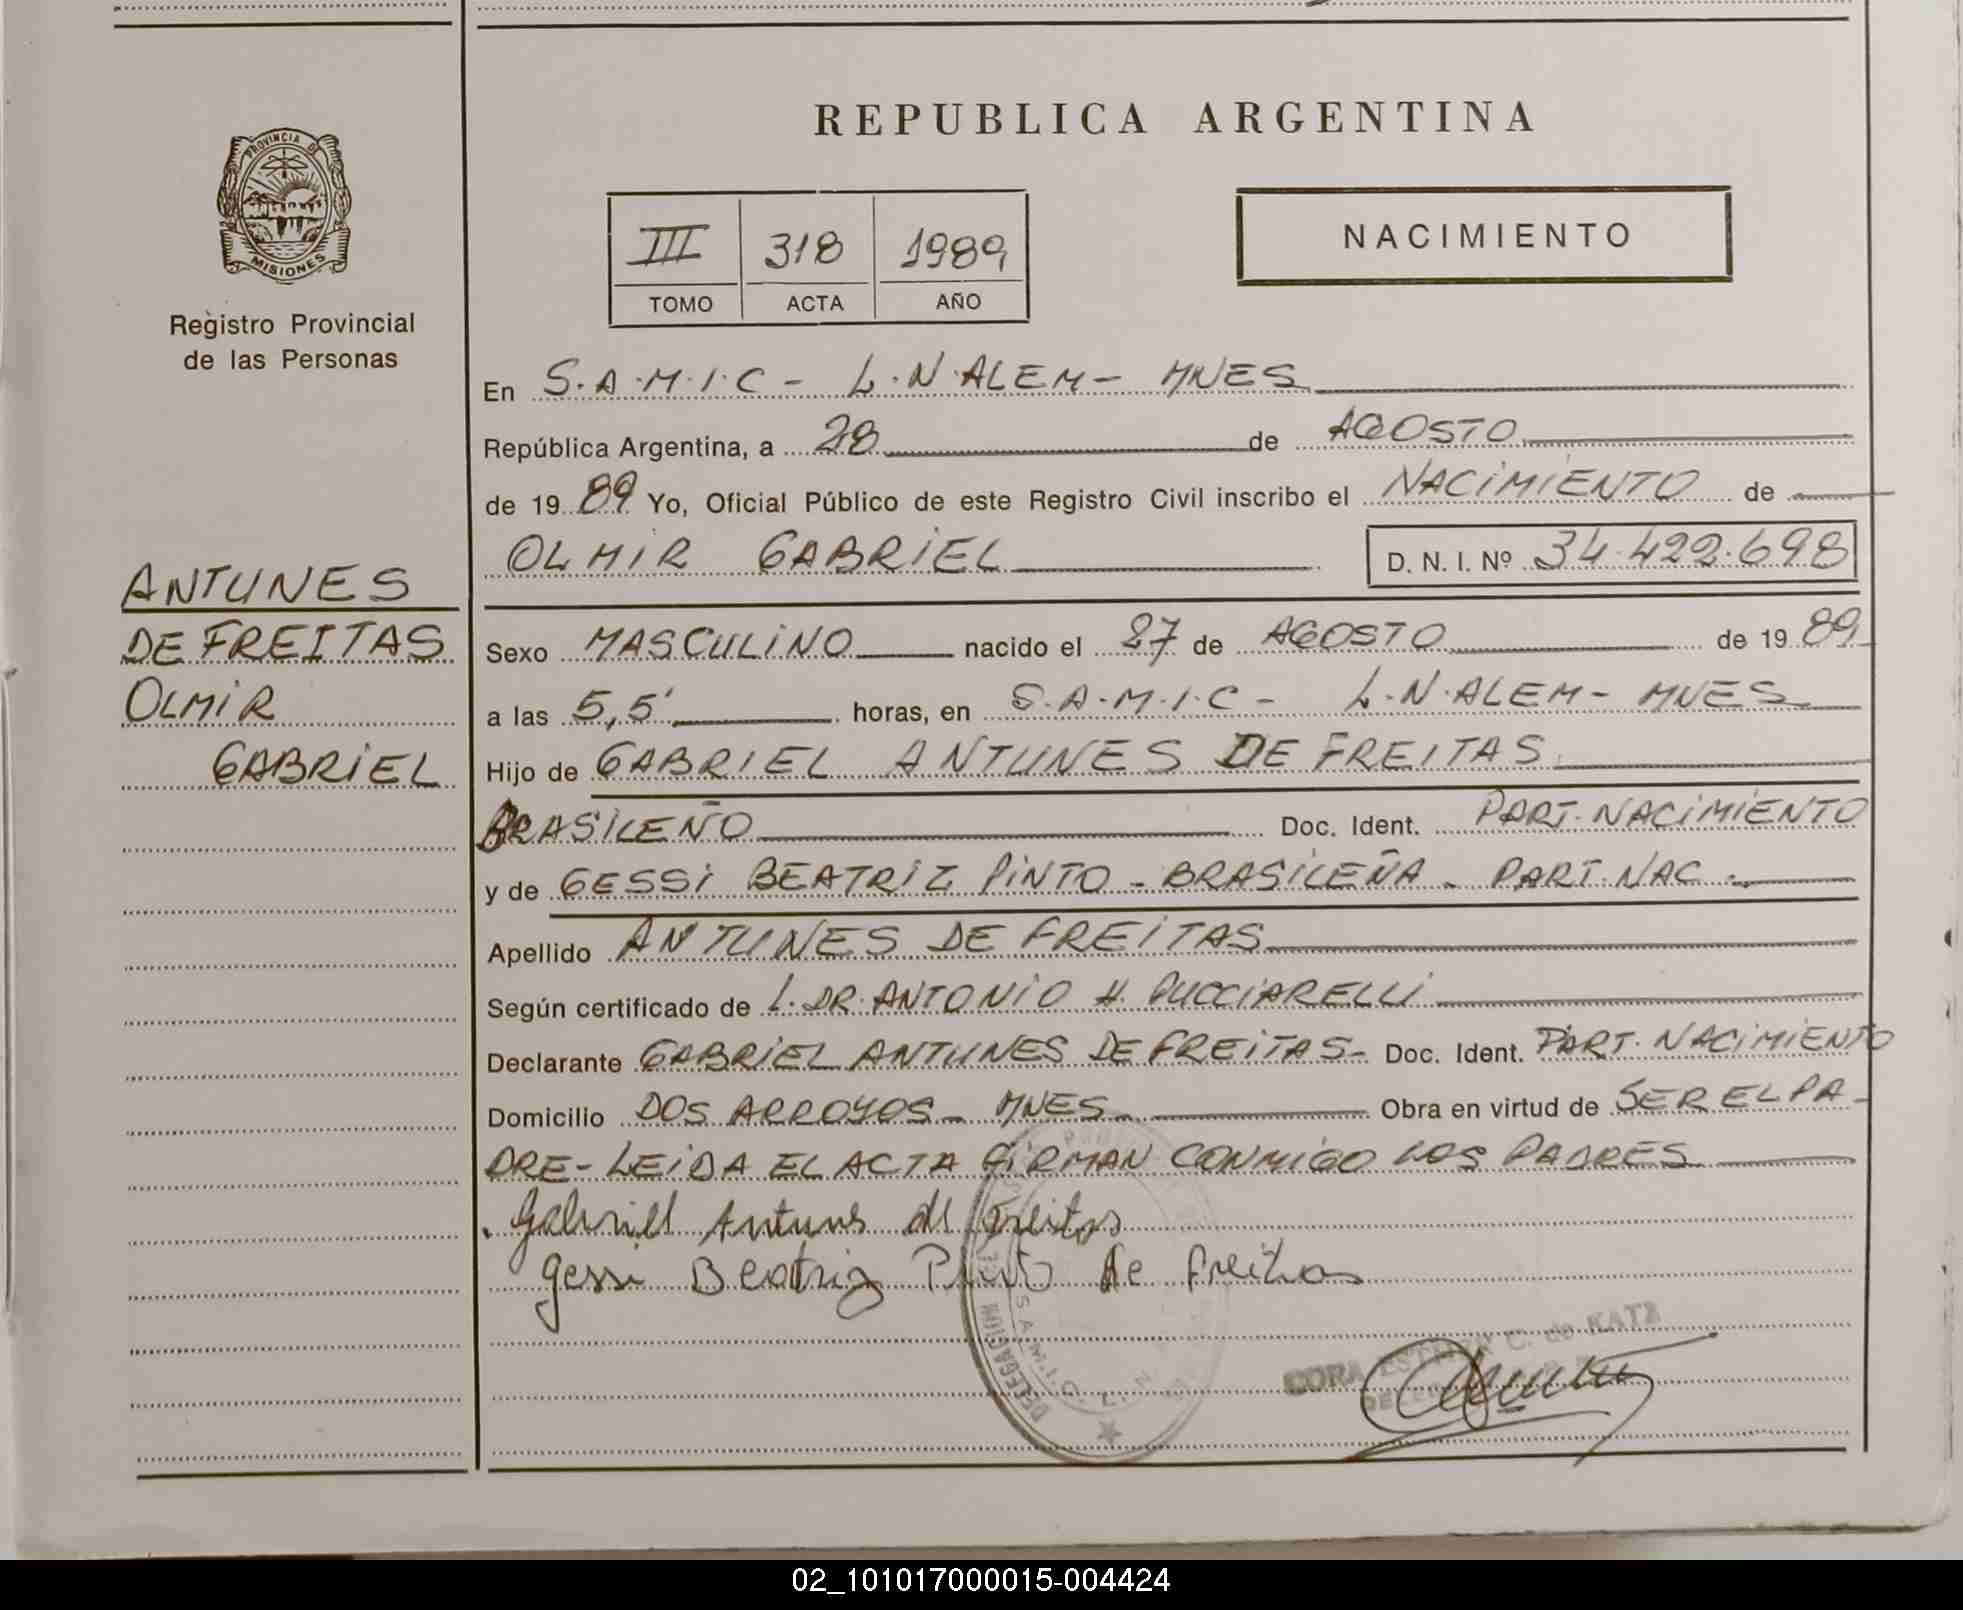 PROVINCIA DE
MISIONES
Registro Provincial
de las Personas
ANTUNES
DE FREITAS
OLMIR
GABRIEL
REPUBLICA ARGENTINA
III 318 1989
TOMO ACTA AÑO
NACIMIENTO
En S.A.M.I.C - L.N.ALEM - MNES
República Argentina, a 28 de AGOSTO
de 1989 Yo, Oficial Público de este Registro Civil inscribo el NACIMIENTO de
OLMIR GABRIEL D. N. I. Nº 34.422.698
Sexo MASCULINO nacido el 27 de AGOSTO de 1989
a las 5,5' horas, en S.A.M.I.C - L.N.ALEM - MNES
Hijo de GABRIEL ANTUNES DE FREITAS
BRASILEÑO Doc. Ident. PART. NACIMIENTO
y de GESSI BEATRIZ PINTO - BRASILEÑA - PART. NAC.-
Apellido ANTUNES DE FREITAS
Según certificado de L. DR. ANTONIO H. PUCCIARELLI
Declarante GABRIEL ANTUNES DE FREITAS - Doc. Ident. PART. NACIMIENTO
Domicilio DOS ARROYOS - MNES Obra en virtud de SER EL PA-
DRE - LEIDA EL ACTA FIRMAN CONMIGO LOS PADRES
Gabriel Antunes de Freitas
Gessi Beatriz Pinto de Freitas
DELEGACION S.A.M.I.C. L.N.
CORA ESTHER C. de KATZ
02_101017000015-004424